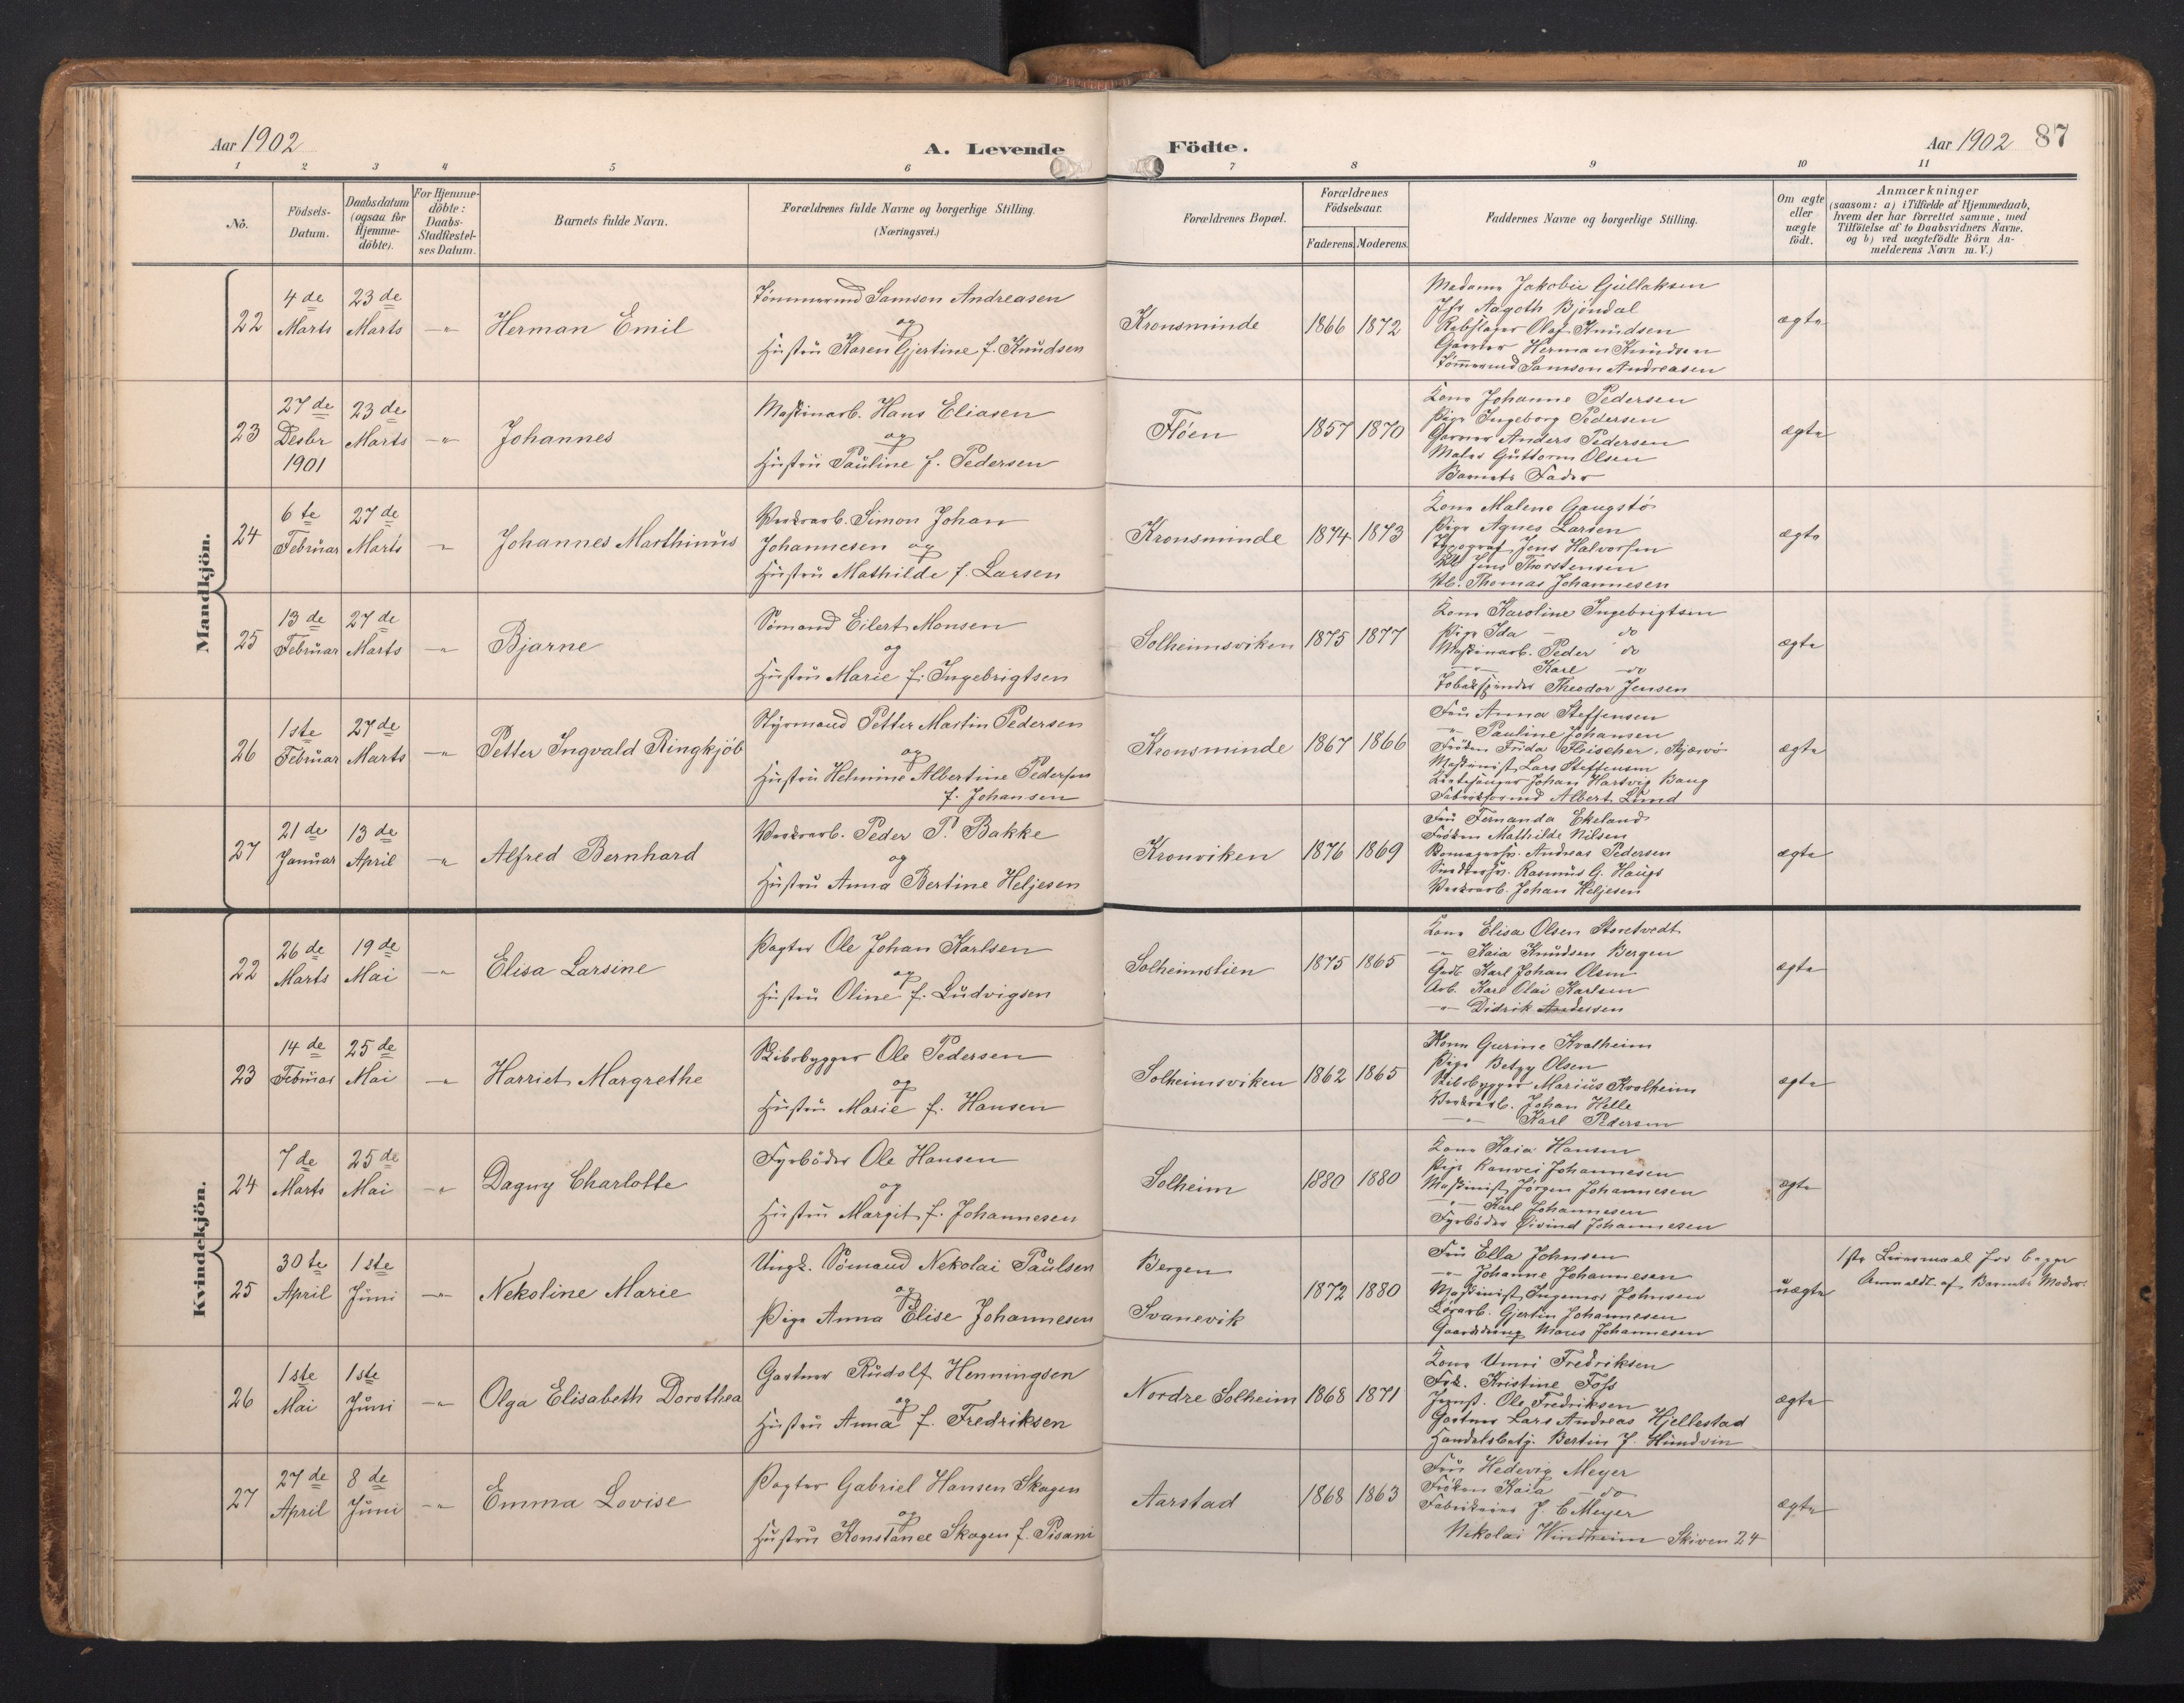 Aar 1902
A. Levende
Födte.
Aar 1902 87
1 2 3 4 5 6 7 8 9 10 11
Nô.
Födsels-
Datum.
Daabsdatum
(ogsaa for
Hjemme-
döbte).
For Hjemme-
döbte:
Daabs-
Stadfæstel-
ses Datum.
Barnets fulde Navn.
Forældrenes fulde Navne og borgerlige Stilling.
(Næringsvei.)
Forældrenes Bopæl.
Forældrenes
Födselsaar.
Faderens. Moderens.
Faddernes Navne og borgerlige Stilling.
Om ægte
eller
uægte
födt.
Anmærkninger
(saasom: a) i Tilfælde af Hjemmedaab,
hvem der har forrettet samme, med
Tilföielse af to Daabsvidners Navne.
og b) ved uægtefödte Börn An-
melderens Navn m. V.)
Mandkjön.
22
4 de
Marts
23 de
Marts
-"-
Herman Emil
Tømmermd Samson Andreasen
og
Hustru Karen Gjertine f. Knudsen
Kronsminde
1866 1872
Madame Jakobie Gullaksen
Jfr Aagoth Bjöndal
Rebslager Olaf Knudsen
Garver Herman Knudsen
Tömmermd Samson Andreasen
ægte
23
27 de
Desbr
1901
23 de
Marts
-"-
Johannes
Maskinarb. Hans Eliasen
og
Hustru Pauline f. Pedersen
Flöen
1857 1870
Kone Johanne Pedersen
Pige Ingeborg Pedersen
Garver Anders Pedersen
Maler Guttorm Olsen
Barnets Fader
ægte
24
6 te
Februar
27 de
Marts
"
Johannes Marthinus
Verkrarb. Simon Johan
Johannesen og
Hustru Mathilde f. Larsen
Kronsminde
1874 1873
Kone Malene Gaugstö
Pige Agnes Larsen
Typograf Jens Halvorsen
Jens Thorstensen
Thomas Johannesen
ægte
25
13 de
Februar
27 de
Marts
-"-
Bjarne
Sömand Eilert Monsen
og
Hustru Marie f. Ingebrigtsen
Solheimsviken
1875 1877
Kone Karoline Ingebrigtsen
Pige Ida - do
Maskinarb. Peder do
-"- Karl - do
Tobakspinder Theodor Jensen
ægte
26
1ste
Februar
27 de
Marts
-"-
Petter Ingvald Ringkjöb
Styrmand Petter Martin Pedersen
og
Hustru Helmine Albertine Pedersen
f. Johansen
Kronsminde
1867 1866
Fru Anna Steffensen
-"- Pauline Johansen
Fröken Frida Fleischer, Skjærvö
Maskinist Lars Steffensen
Kirkesanger Johan Hartvig Baug
Fabrikformd Albert Lund
ægte
27
21 de
Januar
13 de
April
-"-
Alfred Bernhard
Verkrarb. Peder P. Bakke
og
Hustru Anna Bertine Heljesen
Kronviken
1876 1869
Fru Fernanda Ekeland
Fröken Mathilde Nilsen
Andreas Pedersen
Rasmus G. Haugs
Verkrarb. Johan Heljesen
ægte
Kvindekjön.
22
26 de
Marts
19 de
Mai
-"-
Elisa Larsine
Pagter Ole Johan Karlsen
og
Hustru Oline f. Ludvigsen
Solheimslien
1875 1865
Kone Elisa Olsen Storetvedt
-"- Kaia Knudsen Bergen
Gdb. Karl Johan Olsen
Arb. Karl Olai Karlsen
-"- Didrik Andersen
ægte
23
14 de
Februar
25 de
Mai
-"-
Harriet Margrethe
Skibsbygger Ole Pedersen
og
Hustru Marie f. Hansen
Solheimsviken
1862 1865
Kone Gurine Kvalheim
Pige Betzy Olsen
Skibsbygger Marius Kvalheim
Verkrarb. Johan Helle
-"- Karl Pedersen
ægte
24
7 de
Marts
25 de
Mai
-"-
Dagny Charlotte
Fyrböder Ole Hansen
og
Hustru Margit f. Johannesen
Solheim
1880 1880
Kone Kaia Hansen
Pige Ranvei Johannesen
Maskinist Jörgen Johannesen
-"- Karl Johannesen
Fyrböder Öivind Johannesen
ægte
25
30 te
April
1 ste
Juni
-"-
Nekoline Marie
Ungk. Sömand Nekolai Paulsen
og
Pige Anna Elise Johannesen
Bergen
Svanevik
1872 1880
Fru Ella Johnsen
-"- Johanne Johannesen
Maskinist Ingemor Johnsen
Gjertin Johannesen
Gaarddreng Mons Johannesen
uægte
1ste Leiermaal for begge
Anmeldt af Barnets Moder
26
1 ste
Mai
1ste
Juni
-"-
Olga Elisabeth Dorothea
Gartner Rudolf Henningsen
og
Hustru Anna f. Fredriksen
Nordre Solheim
1868 1871
Kone Unni Fredriksen
Frk. Kristine Foss
Ole Fredriksen
Gartner Lars Andreas Hjellestad
Handelsbetj. Bertin J. Hundvin
ægte
27
27 de
April
8 de
Juni
-"-
Emma Lovise
Pagter Gabriel Hansen Skagen
og
Hustru Konstance Skagen f. Pisani
Aarstad
1868 1863
Fru Hedevig Meyer
Fröken Kaia - do -
Fabrikeier J. C Meyer
Nekolai Windheim Skiven 24
ægte